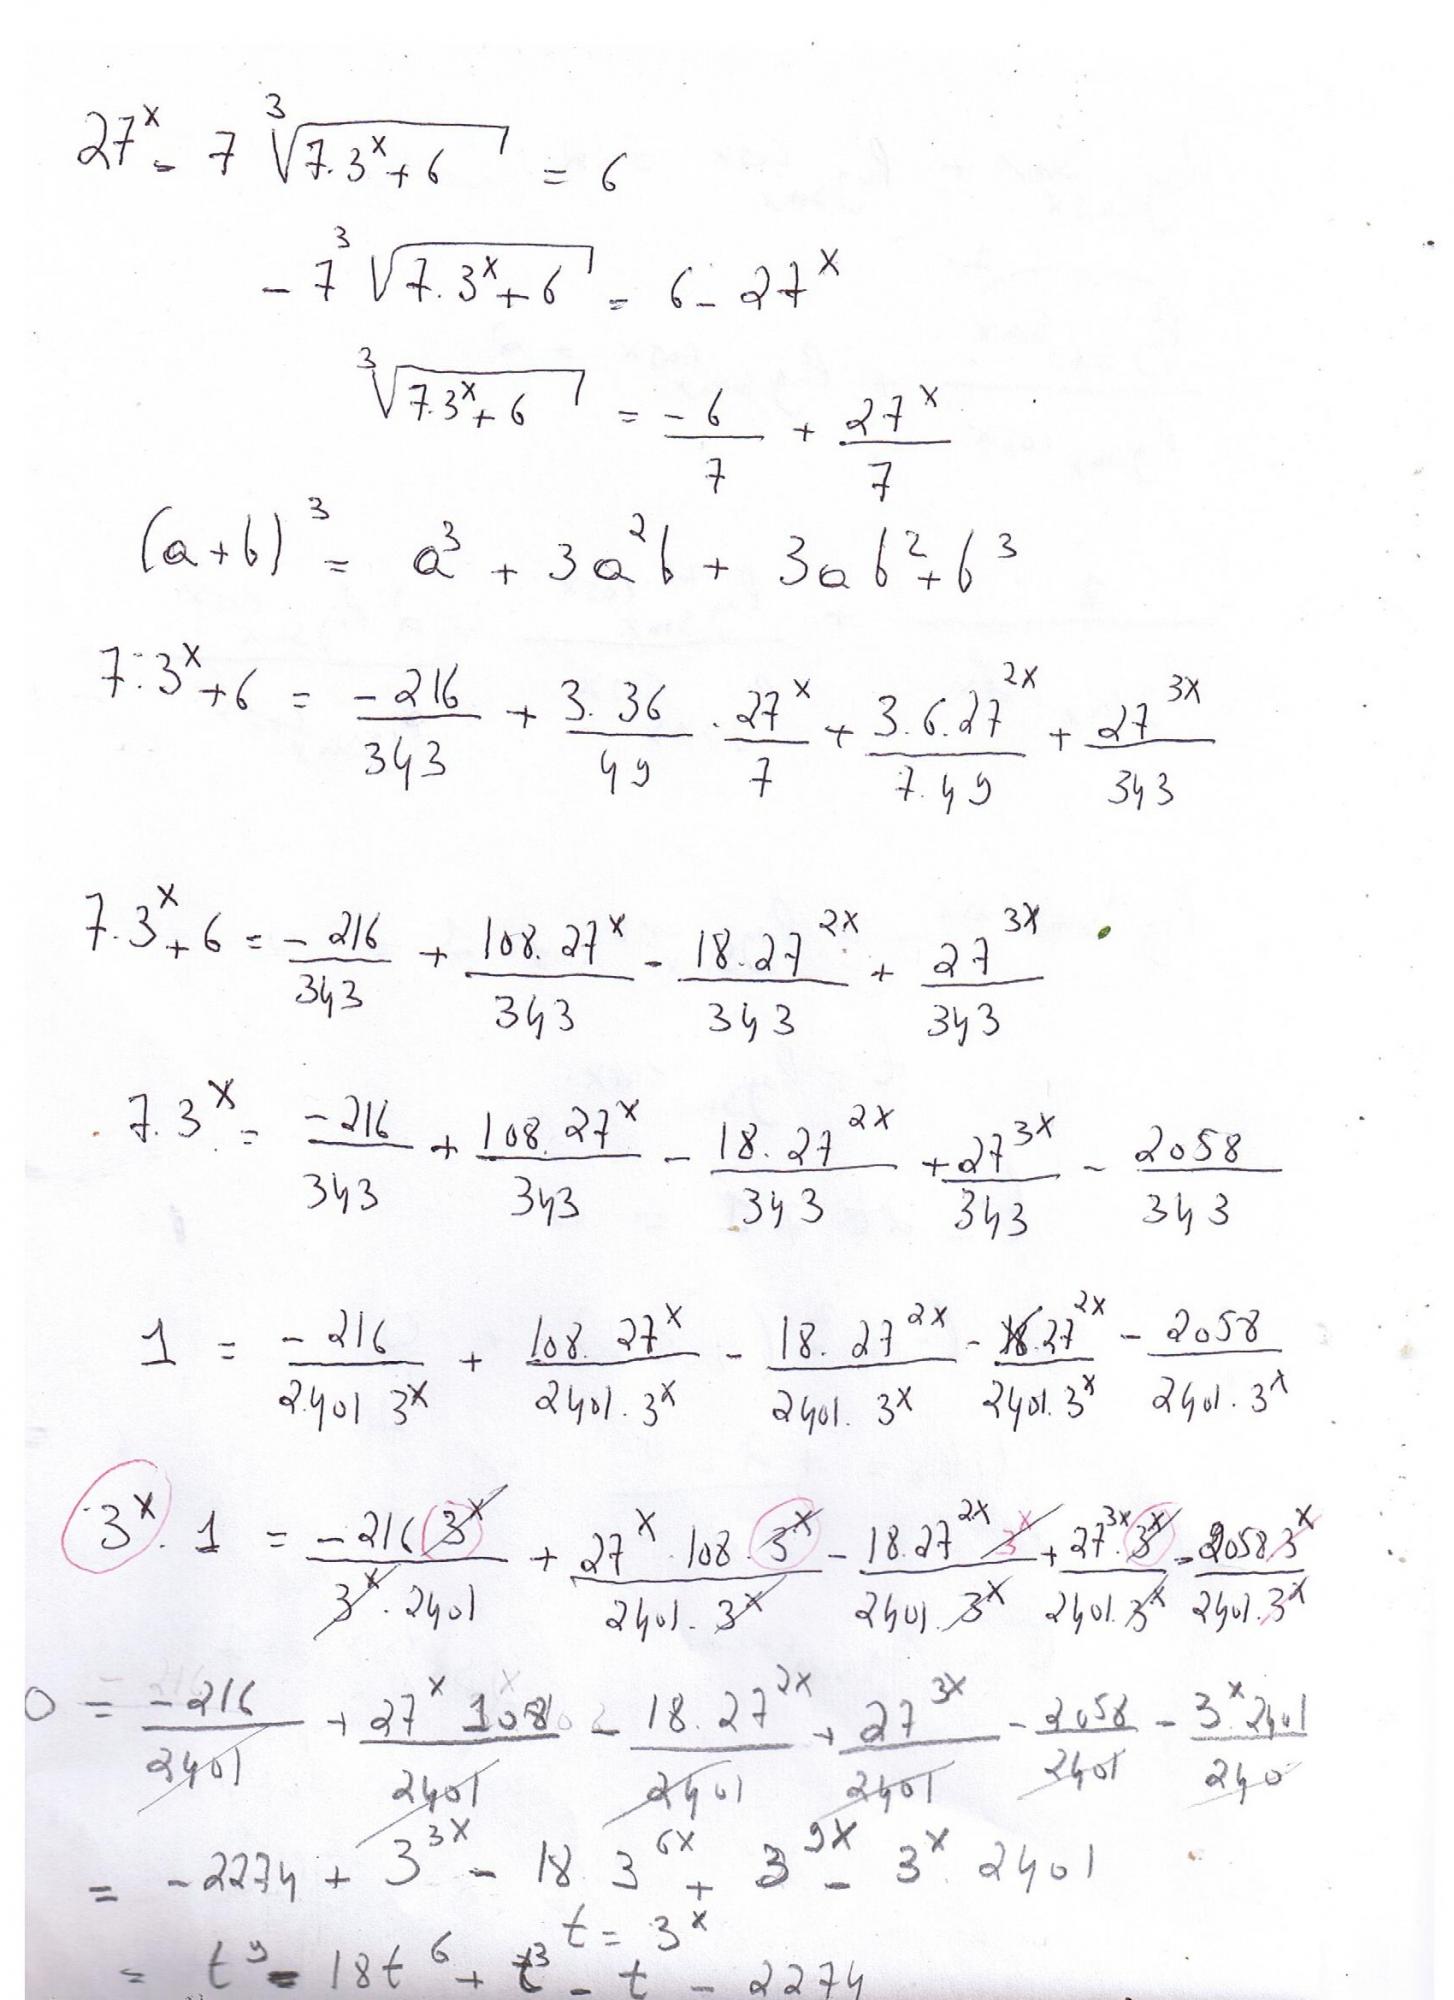 27^x - 7 ∛(7.3^x + 6) = 6
- 7 ∛(7.3^x + 6) = 6 - 27^x
∛(7.3^x + 6) = -6/7 + 27^x/7
(a+b)^3 = a^3 + 3a^2b + 3ab^2 + b^3
7.3^x + 6 = -216/343 + 3.36/49 . 27^x/7 + 3.6.27^2x/7.49 + 27^3x/343
7.3^x + 6 = -216/343 + 108.27^x/343 - 18.27^2x/343 + 27^3x/343
7.3^x = -216/343 + 108.27^x/343 - 18.27^2x/343 + 27^3x/343 - 2058/343
1 = -216/2401 3^x + 108.27^x/2401.3^x - 18.27^2x/2401.3^x - 27^2x/2401.3^x - 2058/2401.3^x
3^x.1 = -216 3^x/3^x.2401 + 27^x.108.3^x/2401.3^x - 18.27^2x 3^x/2401.3^x + 27^3x.3^x/2401.3^x - 2058 3^x/2401.3^x
0 = -216/2401 + 27^x 108/2401 - 18.27^2x/2401 + 27^3x/2401 - 2058/2401 - 3^x 2401/240
= -2274 + 3^3x - 18 3^6x + 3^9x - 3^x. 2401
t = 3^x
= t^9 - 18t^6 + t^3 - t - 2274